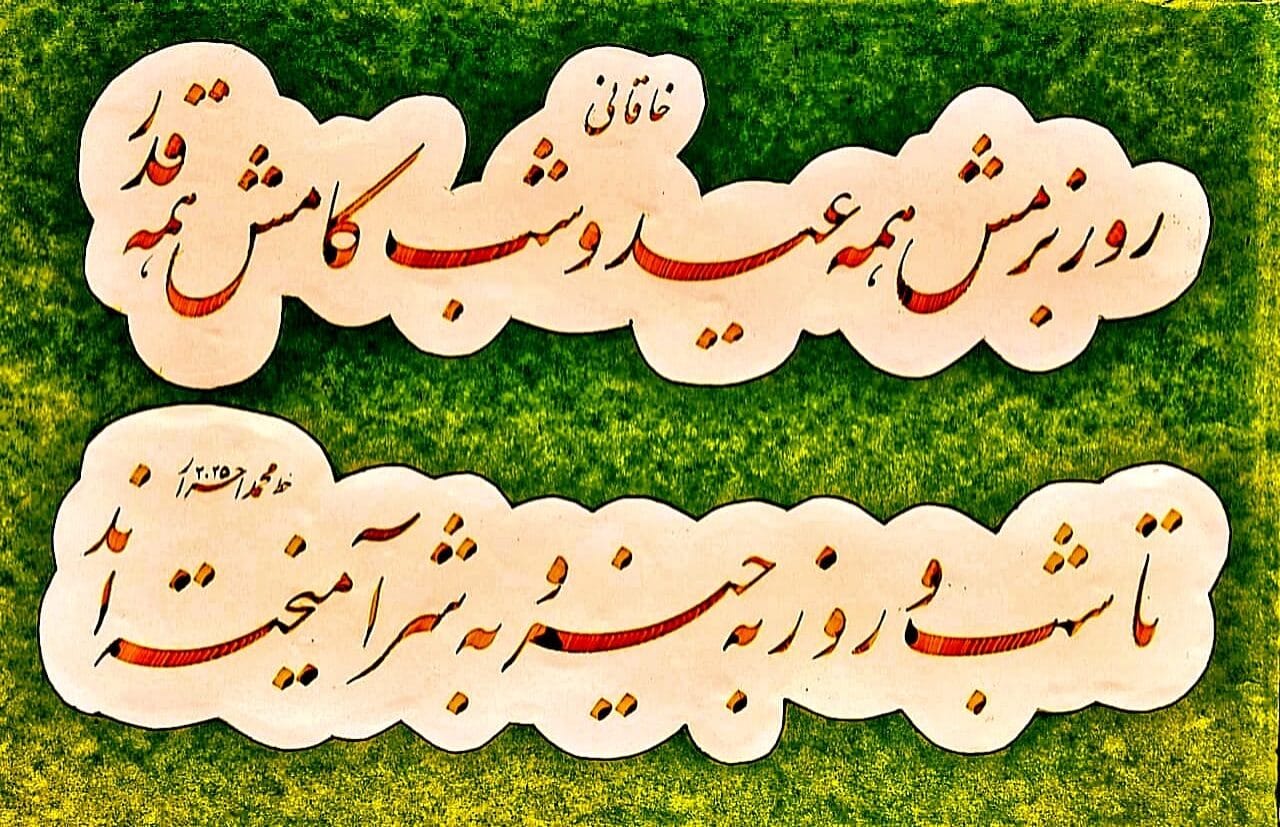 خاقانی
روز بزمش همه عید و شب کامش همه قدر
خط محمد احراری ۲۰۲۵
تا شب و روز به چیز و به شر آمیخته‌اند